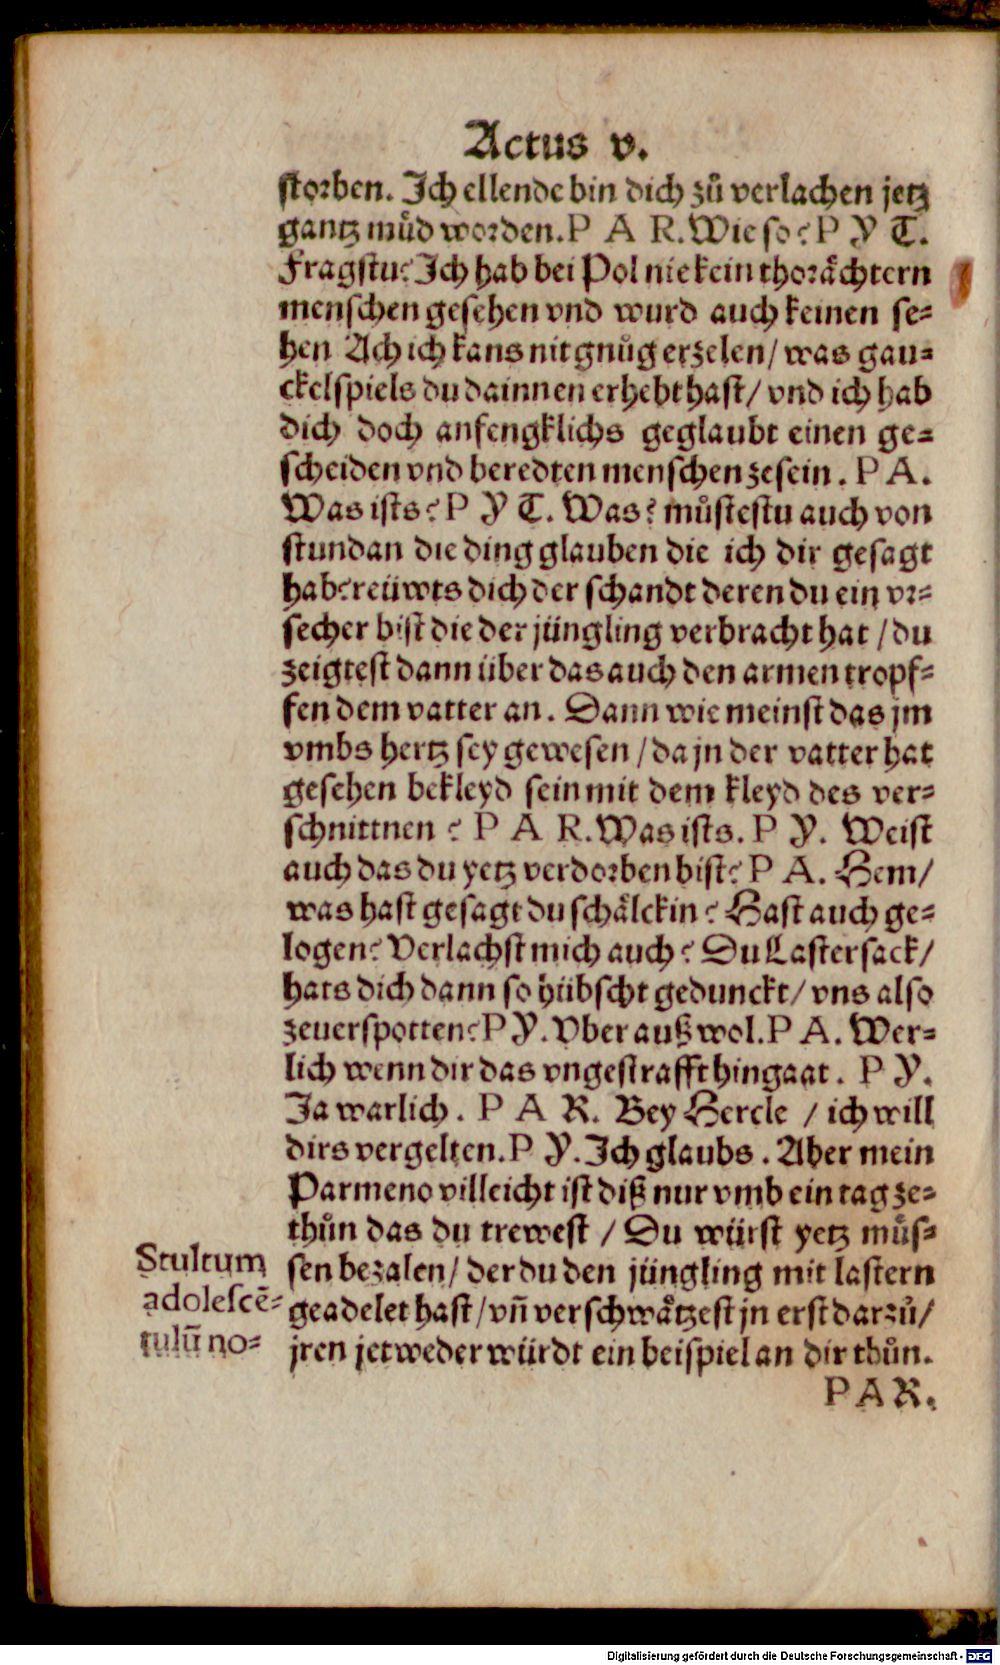 Actus v.
storben. Ich ellende bin dich zů verlachen jetz
gantz můd worden. P A R. Wie so? P Y T.
Fragstu? Ich hab bei Pol nie kein thoraͤchtern
menschen gesehen vnd wurd auch keinen se⸗
hen Ach ich kans nit gnůg erzelen/ was gau⸗
ckelspiels du dainnen erhebt hast/ vnd ich hab
dich doch anfengklichs geglaubt einen ge⸗
scheiden vnd beredten menschen zesein. P A.
Was ists? P Y T. Was? můstestu auch von
stundan die ding glauben die ich dir gesagt
hab? reüwts dich der schandt deren du ein vr⸗
secher bist die der jüngling verbracht hat / du
zeigtest dann über das auch den armen tropf⸗
fen dem vatter an. Dann wie meinst das jm
vmbs hertz sey gewesen / da jn der vatter hat
gesehen bekleyd sein mit dem kleyd des ver⸗
schnittnen ? P A R. Was ists. P Y. Weist
auch das du yetz verdorben bist? P A. Hem/
was hast gesagt du schaͤlckin? Hast auch ge⸗
logen? Verlachst mich auch? Du Lastersack/
hats dich dann so hübscht gedunckt/ vns also
zeuerspotten? P Y. Vber auß wol. P A. Wer⸗
lich wenn dir das vngestrafft hingaat. P Y.
Ja warlich. P A R. Bey Hercle / ich will
dirs vergelten. P Y. Ich glaubs. Aber mein
Parmeno villeicht ist diß nur vmb ein tag ze⸗
thůn das du trewest / Du würst yetz můs⸗
sen bezalen/ der du den jüngling mit lastern
geadelet hast/ vn̄ verschwaͤtzest jn erst darzů/
jren jetweder würdt ein beispiel an dir thůn.
P A R.
Stultum
adolescē⸗
tulū no⸗
Digitalisierung gefördert durch die Deutsche Forschungsgemeinschaft - DFG